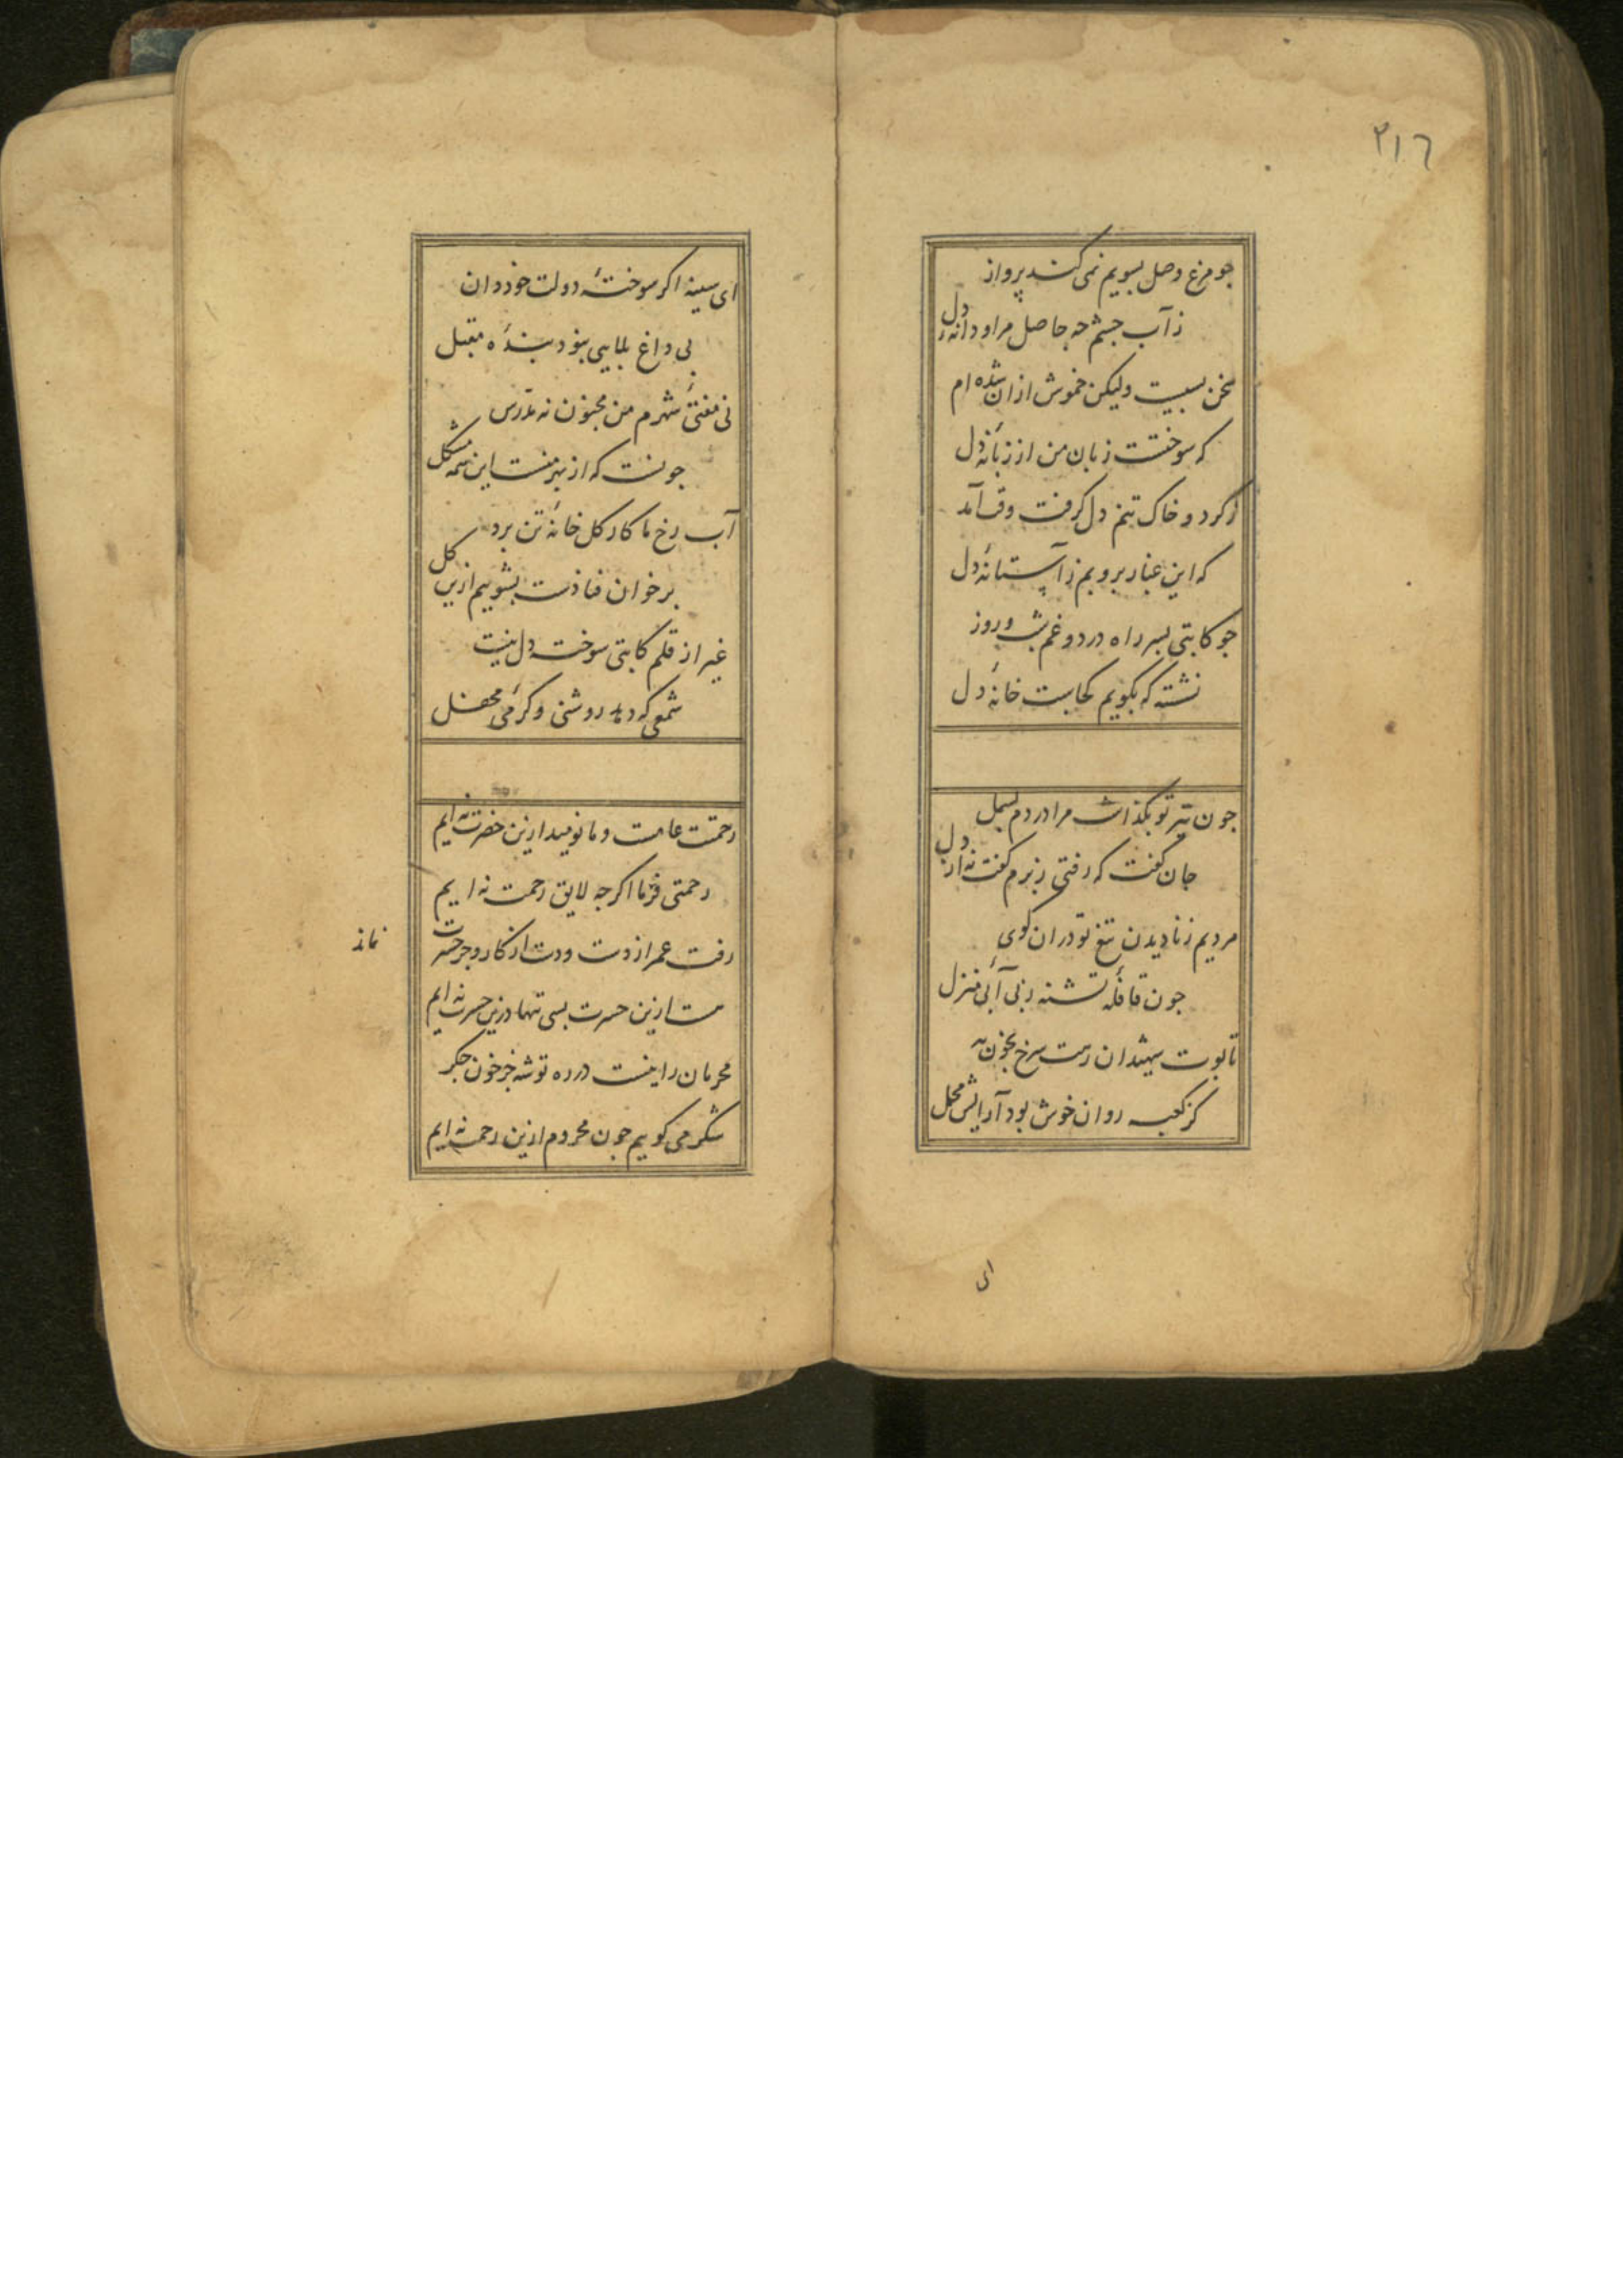 ۲۱۶
جو مرغ وصل بسویم نمی کند پرواز
ز آب جشم چه حاصل مرا و دانه دل
سخن بسیست ولیکن خموش ازان شده ام
که سوختست زبان من از زبانه دل
ز کرد و خاک تنم دل کرفت وقت آمد
که این غبار بروبم ز آستانه دل
جو کاتبی بسر راه درد و غم شب و روز
نشسته که بکویم کجاست خانه دل
جون تیر تو بکذاشت مرا در دم بسمل
جان کفت که رفتی ز برم کفت نه از دل
مردیم ز نادیدن تیغ تو دران کوی
جون قافله تشنه ز بی آبی منزل
تابوت شهیدان رهت سرخ بخون به
کز کعبه روان خوش بود آرایش محمل
ای
ای سینه اکر سوختهٔ دولت خود دان
بی داغ بلایی نبود بندهٔ مقبل
نی مفتی شهرم من مجنون نه مدرس
جونست که از بهر منست این همه مشکل
آب رخ ما کار کل خانهٔ تن برد
بر خوان فنا دست بشوییم ازین کل
غیر از قلم کاتبی سوخته دل نیست
شمعی که دهد روشنی و کرمی محفل
رحمتت عامست و ما نومید ازین حضرت نه ایم
رحمتی فرما اکرجه لایق رحمت نه ایم
رفت عمر از دست و دست از کار و جز حسرت
نماند
هست ازین حسرت بسی تنها درین حسرت نه ایم
محرمان را نیست در ره توشه جز خون جکر
شکر می کوییم جون محروم ازین رحمت نه ایم